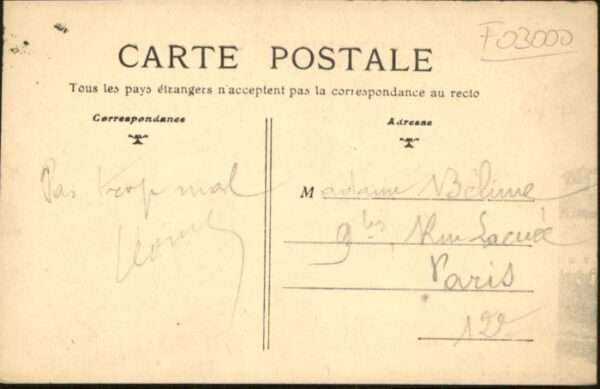 F03000
CARTE POSTALE
Tous les pays étrangers n'acceptent pas la correspondance au recto
Correspondance
Adresse
Pas trop mal
Madame Béline
9 bis, Rue Lacuée
Paris
12e